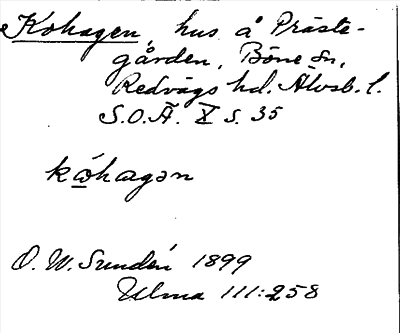 Kohagen, hus å Präste-
gården, Böne sn,
Redvägs hd. Älvsb. l.
S.O.Ä. X s. 35
kóhagən
O. W. Sundén 1899
Ulma 111:258